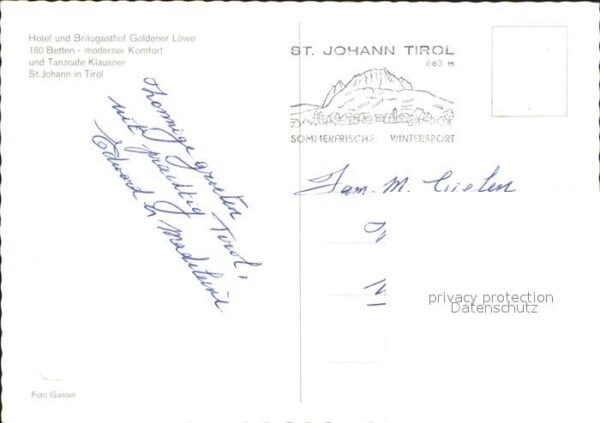 Hotel und Bräugasthof Goldener Löwe
180 Betten - moderner Komfort
und Tanzcafe Klausner
St. Johann in Tirol
ST. JOHANN TIROL
663 m
SOMMERFRISCHE WINTERSPORT
Zonnige groeten
uit prachtig Tirol,
Edward & Madeleine
Fam. M. Cielen
privacy protection
Datenschutz
Foto Gasser